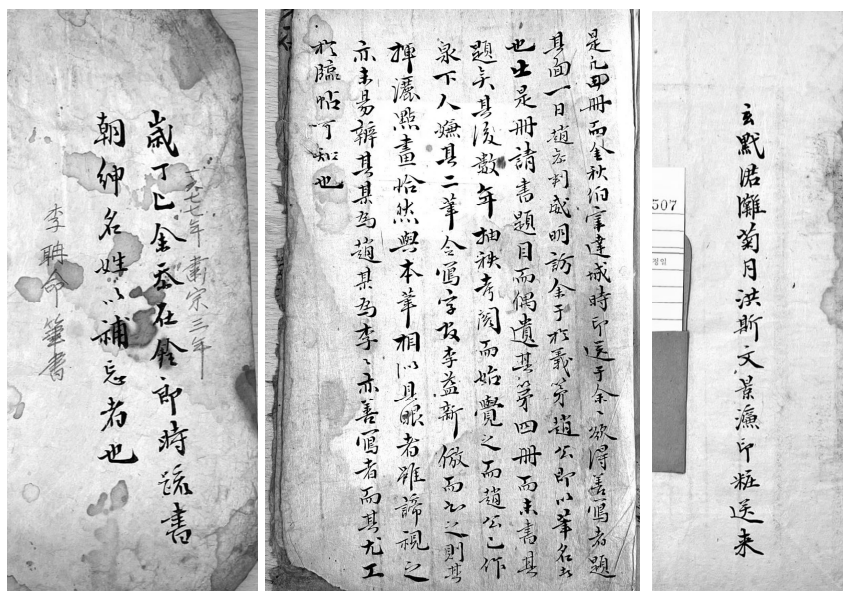 歲丁巳金忝在銓郎時疏書
朝紳名姓以補忘者也
一六七七年 肅宗三年
李聃命筆書
是凡四冊而金秋伯宰達城時印送于余〻欲得善寫者題
其面一日趙台判威明訪余于於義第趙公卽以筆名者
也出是冊請書題目而偶遺其第四冊而未書其
題矣其後數年抽秧考閱而始覺之而趙公已作
泉下人嫌其二筆合寫字故李益新倣而書之則其
揮灑點畫恰然與本筆相似具眼者雖諦視之
亦未易辨其某爲趙某爲李〻亦善寫者而其尤工
於臨帖可知也
507
玄黓涒灘菊月洪斯文景濂印粧送来